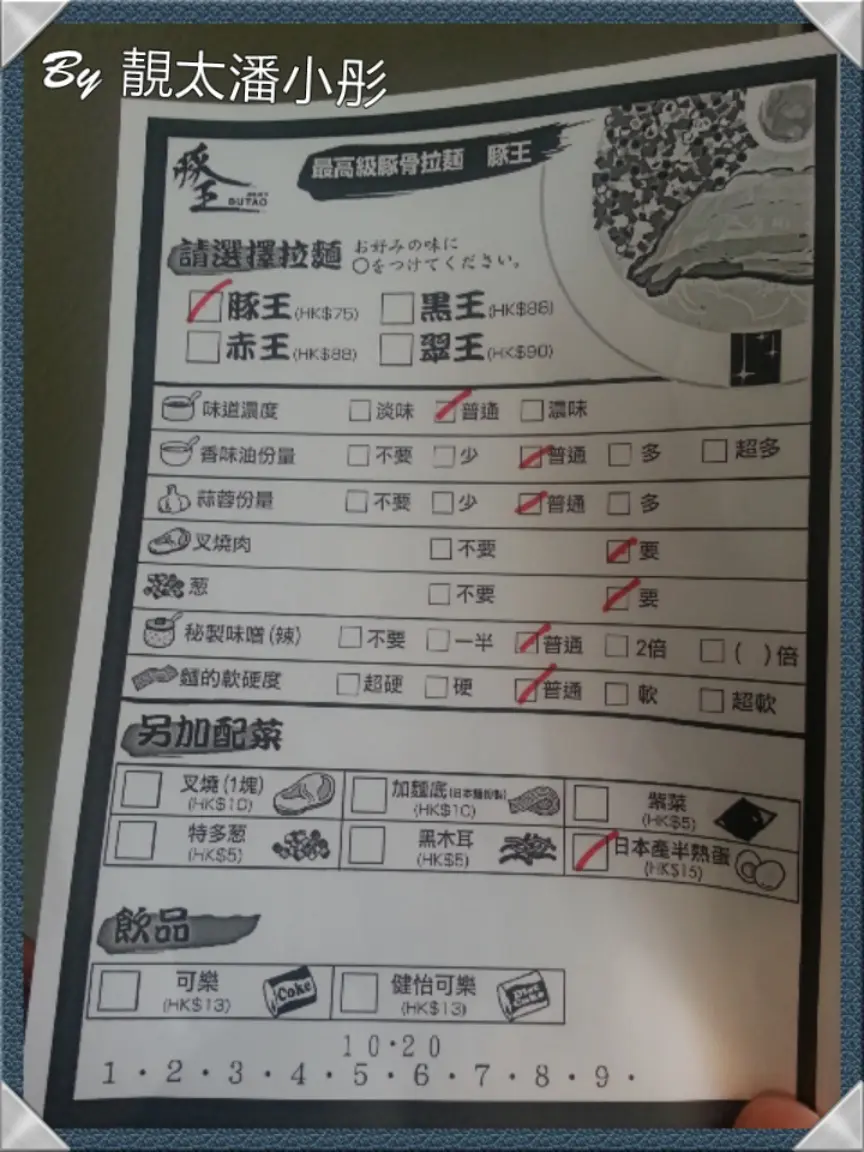 By 靚太潘小彤
豚王
BUTAO
最高級豚骨拉麺 豚王
請選擇拉麵
お好みの味に
○をつけてください。
豚王(HK$75) 黒王(HK$88)
赤王(HK$88) 翠王(HK$90)
味道濃度 淡味 普通 濃味
香味油份量 不要 少 普通 多 超多
蒜蓉份量 不要 少 普通 多
叉燒肉 不要 要
葱 不要 要
秘製味噌(辣) 不要 一半 普通 2倍 ( )倍
麵的軟硬度 超硬 硬 普通 軟 超軟
另加配菜
叉燒(1塊) 加麵底 紫菜
(HK$10) (HK$10) (HK$5)
特多葱 黑木耳 日本產半熟蛋
(HK$5) (HK$5) (HK$15)
飲品
可樂 Coke 健怡可樂 Diet Coke
(HK$13) (HK$13)
10・20
1・2・3・4・5・6・7・8・9・